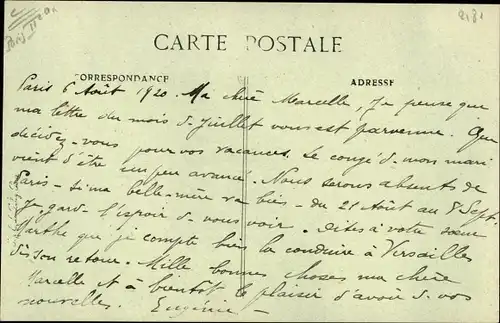 Paris II eme
2181
CARTE POSTALE
CORRESPONDANCE
ADRESSE
Paris 6 Août 1920. Ma chère Marcelle, Je pense que
ma lettre du mois d. Juillet vous est parvenue. Que
décidez-vous pour vos vacances. Le congé d. mon mari
vient d'être un peu avancé. Nous serons absents de
Paris - si ma belle-mère va bien - du 21 Août au 8 Sept.
Je gard. l'espoir d. vous voir. Dites à votre sœur
Marthe que je compte bien la conduire à Versailles
dès son retour. Mille bonnes choses ma chère
Marcelle et à bientôt le plaisir d'avoir d. vos
nouvelles. Eugénie -